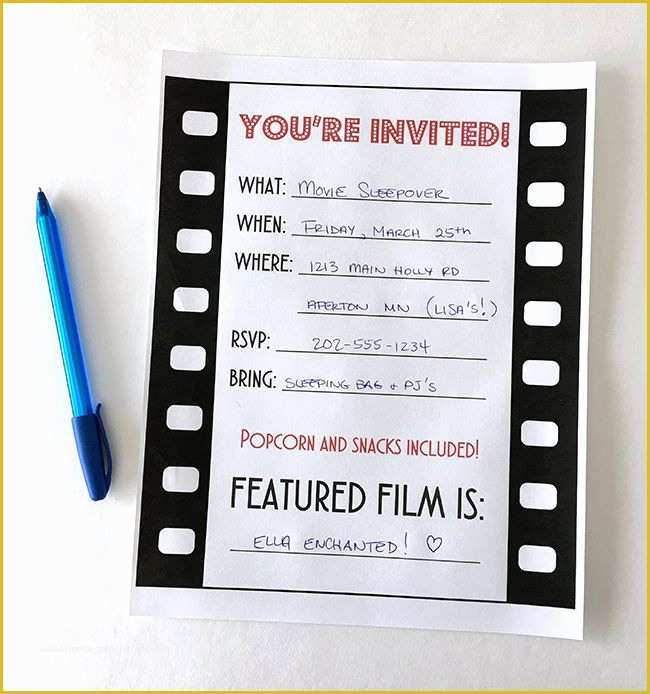 YOU'RE INVITED!
WHAT: MOVIE SLEEPOVER
WHEN: FRIDAY, MARCH 25th
WHERE: 1213 MAIN HOLLY RD
APERTON MN (LISA'S!)
RSVP: 202-555-1234
BRING: SLEEPING BAG & PJ'S
POPCORN AND SNACKS INCLUDED!
FEATURED FILM IS:
ELLA ENCHANTED! ♡